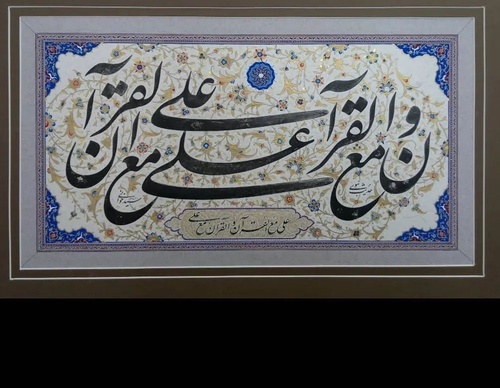 علی مع القرآن و القرآن مع علی
علی مع القرآن و القرآن مع علی